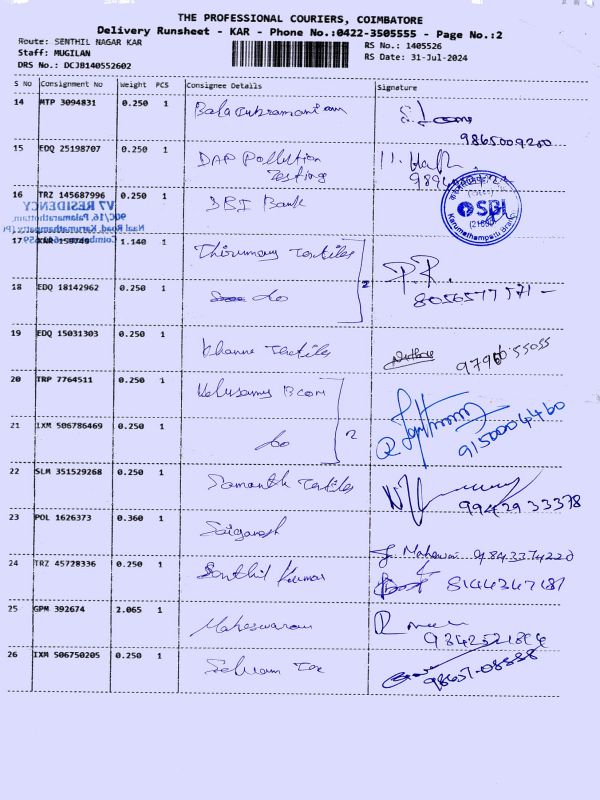 THE PROFESSIONAL COURIERS, COIMBATORE
Delivery Runsheet - KAR - Phone No.:0422-3505555 - Page No.:2
Route: SENTHIL NAGAR KAR
RS No.: 1405526
Staff: MUGILAN
RS Date: 31-Jul-2024
DRS No.: DCJB140552602
S No Consignment No Weight PCS Consignee Details Signature
14 MTP 3094831 0.250 1 Balasubramaniam
9865009200
15 EDQ 25198707 0.250 1 DAP Pollution
Testing
16 TRZ 145687996 0.250 1 SBI Bank
SBI
Karumathampatti Branch
V7 RESIDENCY
90C/16, Palamarathottam,
Road, Karumathampatty (Po)
17 1.140 1 Thirumany Textiles
2
18 EDQ 18142962 0.250 1 do
8056577571
19 EDQ 15031303 0.250 1 Khanna Textiles
20 TRP 7764511 0.250 1 Velusamy Bcom
2
9150004460
21 IXM 506786469 0.250 1 do
22 SLM 351529268 0.250 1 Textiles
99429 33378
23 POL 1626373 0.360 1 Saiganesh
24 TRZ 45728336 0.250 1 Senthil Kumar
8144247187
25 GPM 392674 2.065 1 Maheswaran
26 IXM 506750205 0.250 1 Selvam Tex